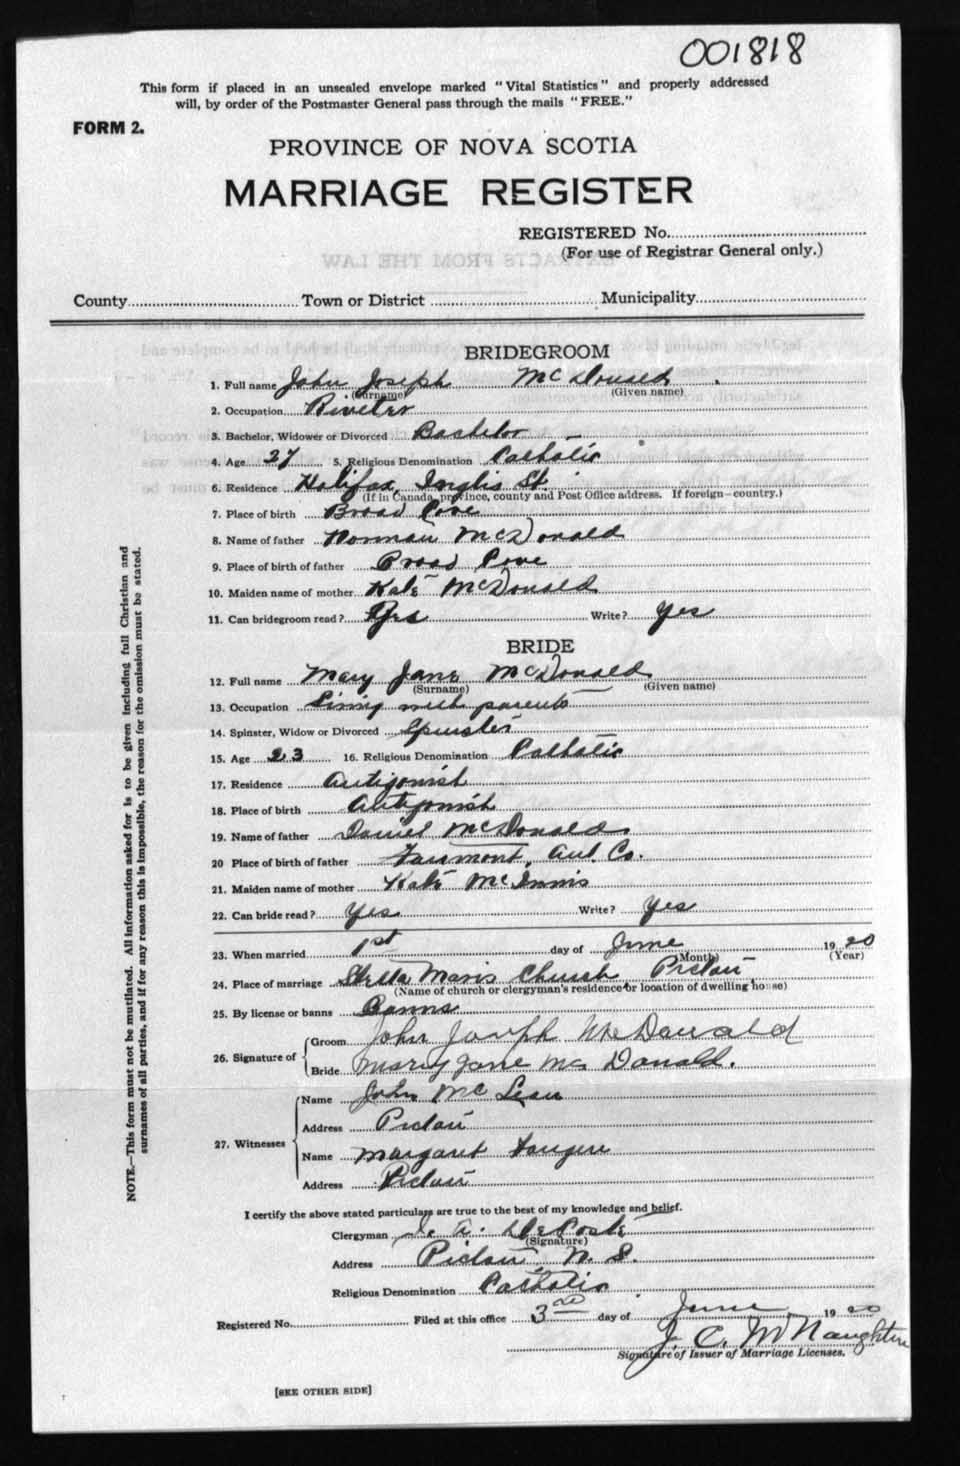 001818
This form if placed in an unsealed envelope marked "Vital Statistics" and properly addressed
will, by order of the Postmaster General pass through the mails "FREE."
FORM 2.
PROVINCE OF NOVA SCOTIA
MARRIAGE REGISTER
REGISTERED No.
(For use of Registrar General only.)
County Town or District Municipality
BRIDEGROOM
1. Full name John Joseph McDonald
(Surname) (Given name)
2. Occupation Riveter
3. Bachelor, Widower or Divorced Bachelor
4. Age 27 5. Religious Denomination Catholic
6. Residence Halifax, Inglis St.
(If in Canada, province, county and Post Office address. If foreign—country.)
7. Place of birth Broad Cove
8. Name of father Norman McDonald
9. Place of birth of father Broad Cove
10. Maiden name of mother Kate McDonald
11. Can bridegroom read? Yes Write? Yes
BRIDE
12. Full name Mary Jane McDonald
(Surname) (Given name)
13. Occupation Living with parents
14. Spinster, Widow or Divorced Spinster
15. Age 23 16. Religious Denomination Catholic
17. Residence Antigonish
18. Place of birth Antigonish
19. Name of father Daniel McDonald
20 Place of birth of father Fairmont, Ant. Co.
21. Maiden name of mother Kate McInnis
22. Can bride read? Yes Write? Yes
23. When married 1st day of June 1920
(Month) (Year)
24. Place of marriage Stella Maris Church Pictou
(Name of church or clergyman's residence or location of dwelling house)
25. By license or banns Banns
26. Signature of Groom John Joseph McDonald
Bride Mary Jane McDonald.
27. Witnesses Name John McLean
Address Pictou
Name Margaret
Address Pictou
I certify the above stated particulars are true to the best of my knowledge and belief.
Clergyman DeCoste
(Signature)
Address Pictou, N. S.
Religious Denomination Catholic
Registered No. Filed at this office 3rd day of June 1920
J. C. McNaughton
Signature of Issuer of Marriage Licenses.
[SEE OTHER SIDE]
NOTE.—This form must not be mutilated. All information asked for is to be given including full Christian and
surnames of all parties, and if for any reason this is impossible, the reason for the omission must be stated.